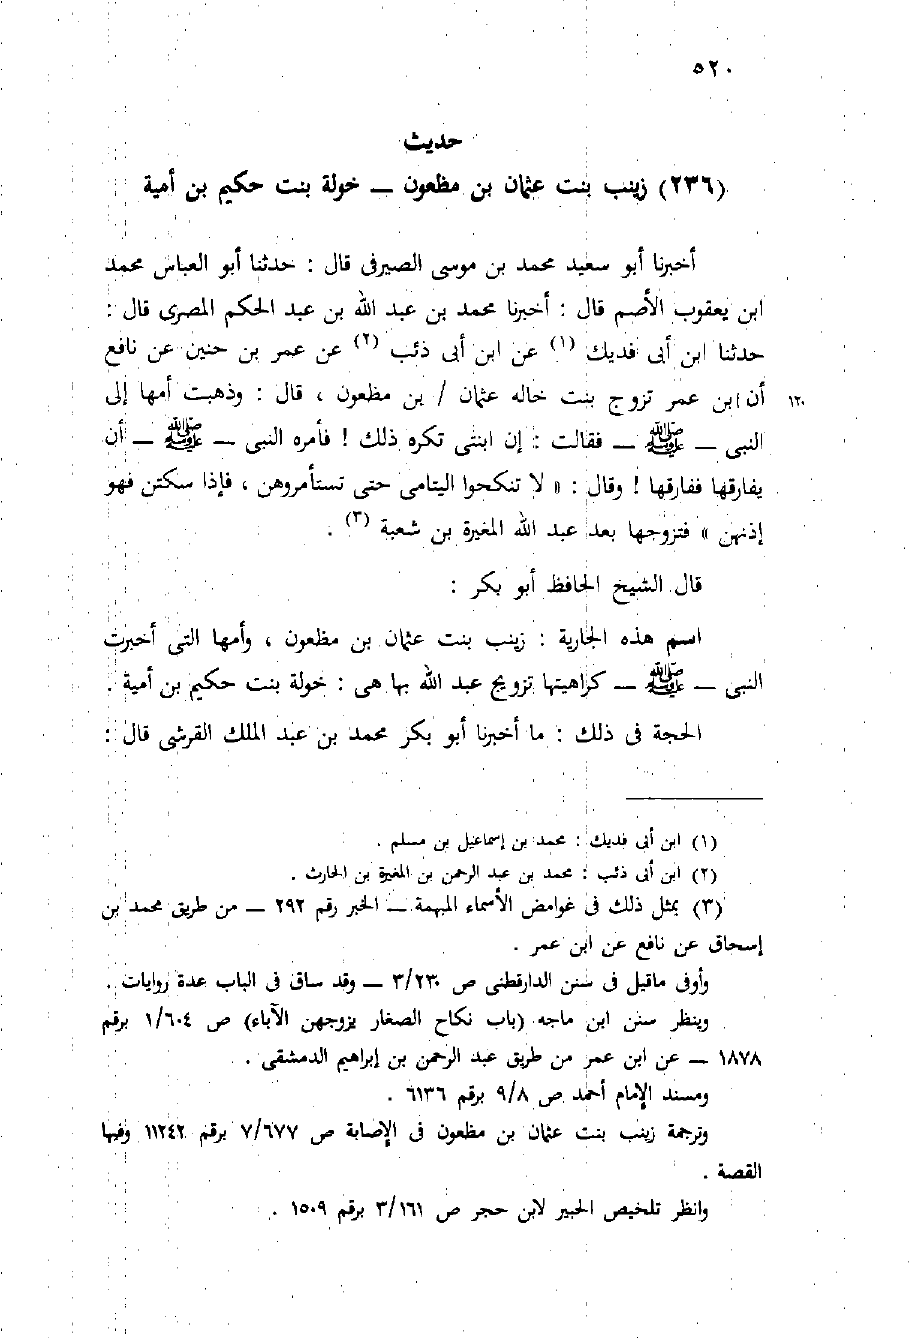 ٥٢٠
حديث
(٢٣٦) زينب بنت عثمان بن مظعون ــ خولة بنت حكيم بن أمية
أخبرنا أبو سعيد محمد بن موسى الصيرفى قال : حدثنا أبو العباس محمد
ابن يعقوب الأصم قال : أخبرنا محمد بن عبد الله بن عبد الحكم المصرى قال :
حدثنا ابن أبى فديك (١) عن ابن أبى ذئب (٢) عن عمر بن حنين عن نافع
أن ابن عمر تزوج بنت خاله عثمان / بن مظعون ، قال : وذهبت أمها إلى ١٢٠
النبى ــ ﷺ ــ فقالت : إن ابنتى تكره ذلك ! فأمره النبى ــ ﷺ ــ أن
يفارقها ففارقها ! وقال : « لا تنكحوا اليتامى حتى تستأمروهن ، فإذا سكتن فهو
إذنهن » فتزوجها بعد عبد الله المغيرة بن شعبة (٣) .
قال الشيخ الحافظ أبو بكر :
اسم هذه الجارية : زينب بنت عثمان بن مظعون ، وأمها التى أخبرت
النبى ــ ﷺ ــ كراهيتها تزويج عبد الله بها هى : خولة بنت حكيم بن أمية .
الحجة فى ذلك : ما أخبرنا أبو بكر محمد بن عبد الملك القرشى قال :
(١) ابن أبى فديك : محمد بن إسماعيل بن مسلم .
(٢) ابن أبى ذئب : محمد بن عبد الرحمن بن المغيرة بن الحارث .
(٣) بمثل ذلك فى غوامض الأسماء المبهمة ــ الخبر رقم ٢٩٢ ــ من طريق محمد بن
إسحاق عن نافع عن ابن عمر .
وأوفى ماقيل فى سنن الدارقطنى ص ٣/٢٣٠ ــ وقد ساق فى الباب عدة روايات .
وينظر سنن ابن ماجه (باب نكاح الصغار يزوجهن الآباء) ص ١/٦٠٤ برقم
١٨٧٨ ــ عن ابن عمر من طريق عبد الرحمن بن إبراهيم الدمشقى .
ومسند الإمام أحمد ص ٩/٨ برقم ٦١٣٦ .
وترجمة زينب بنت عثمان بن مظعون فى الإصابة ص ٧/٦٧٧ برقم ١١٢٤٢ وفيها
القصة .
وانظر تلخيص الحبير لابن حجر ص ٣/١٦١ برقم ١٥٠٩ .